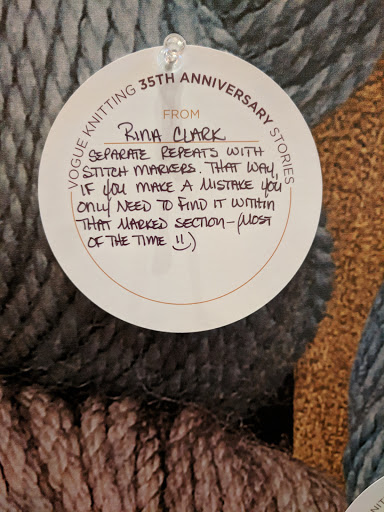 VOGUE KNITTING 35TH ANNIVERSARY STORIES
FROM
RINA CLARK
SEPARATE REPEATS WITH
STITCH MARKERS. THAT WAY,
IF YOU MAKE A MISTAKE YOU
ONLY NEED TO FIND IT WITHIN
THAT MARKED SECTION - (MOST
OF THE TIME !!)